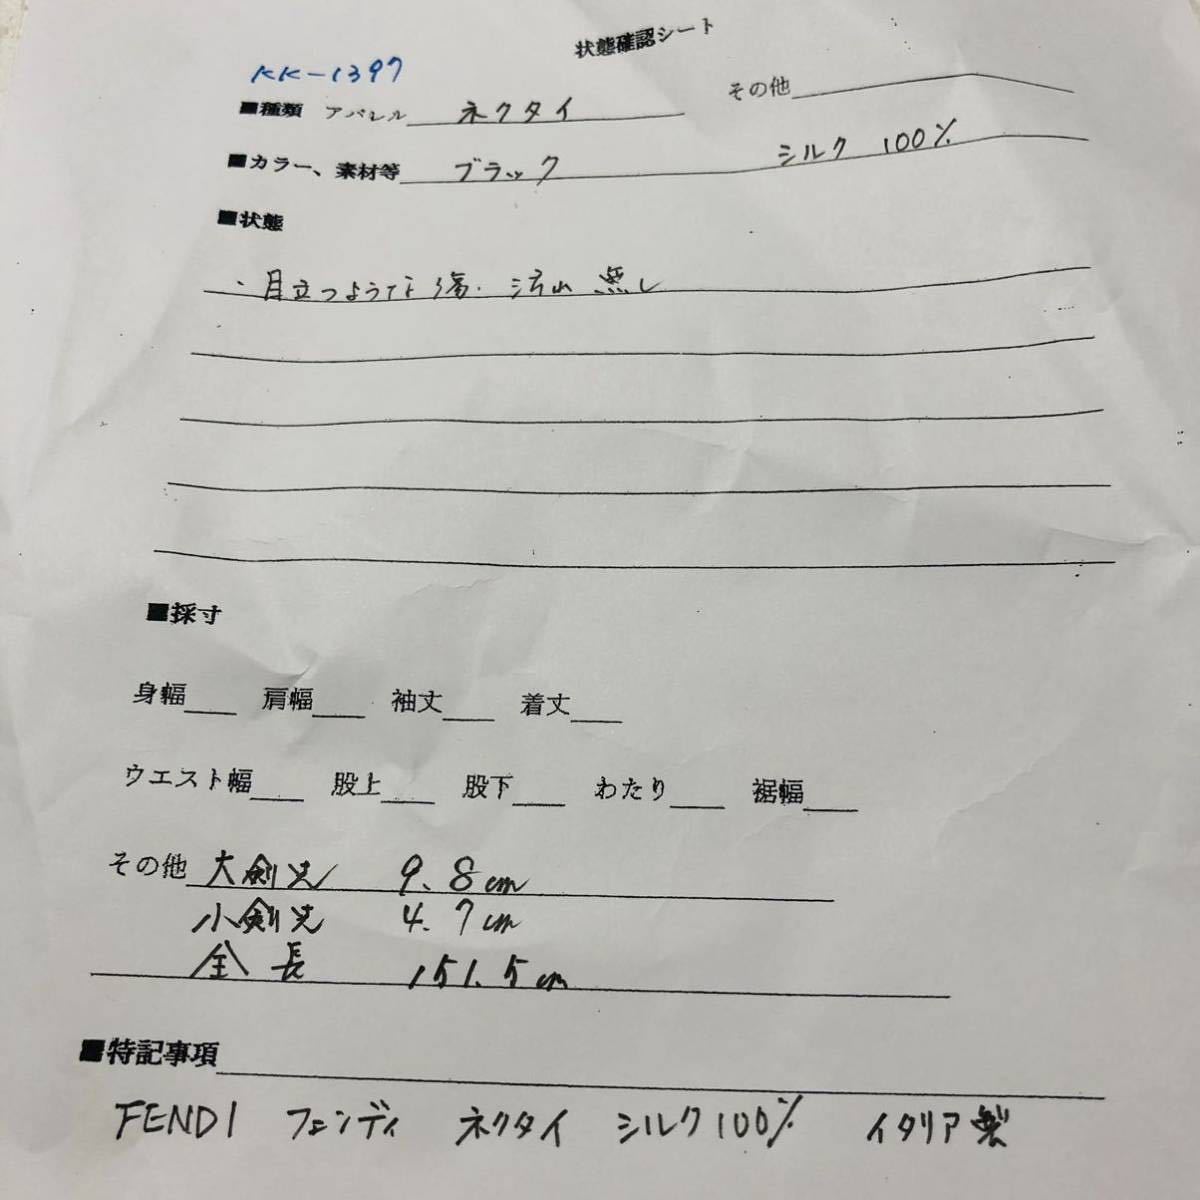 状態確認シート
KK-1397
■種類 アパレル ネクタイ その他
■カラー、素材等 ブラック シルク 100%
■状態
・目立つような傷・汚れ 無し
■採寸
身幅 肩幅 袖丈 着丈
ウエスト幅 股上 股下 わたり 裾幅
その他 大剣先 9.8cm
小剣先 4.7cm
全長 151.5cm
■特記事項
FENDI フェンディ ネクタイ シルク100% イタリア製